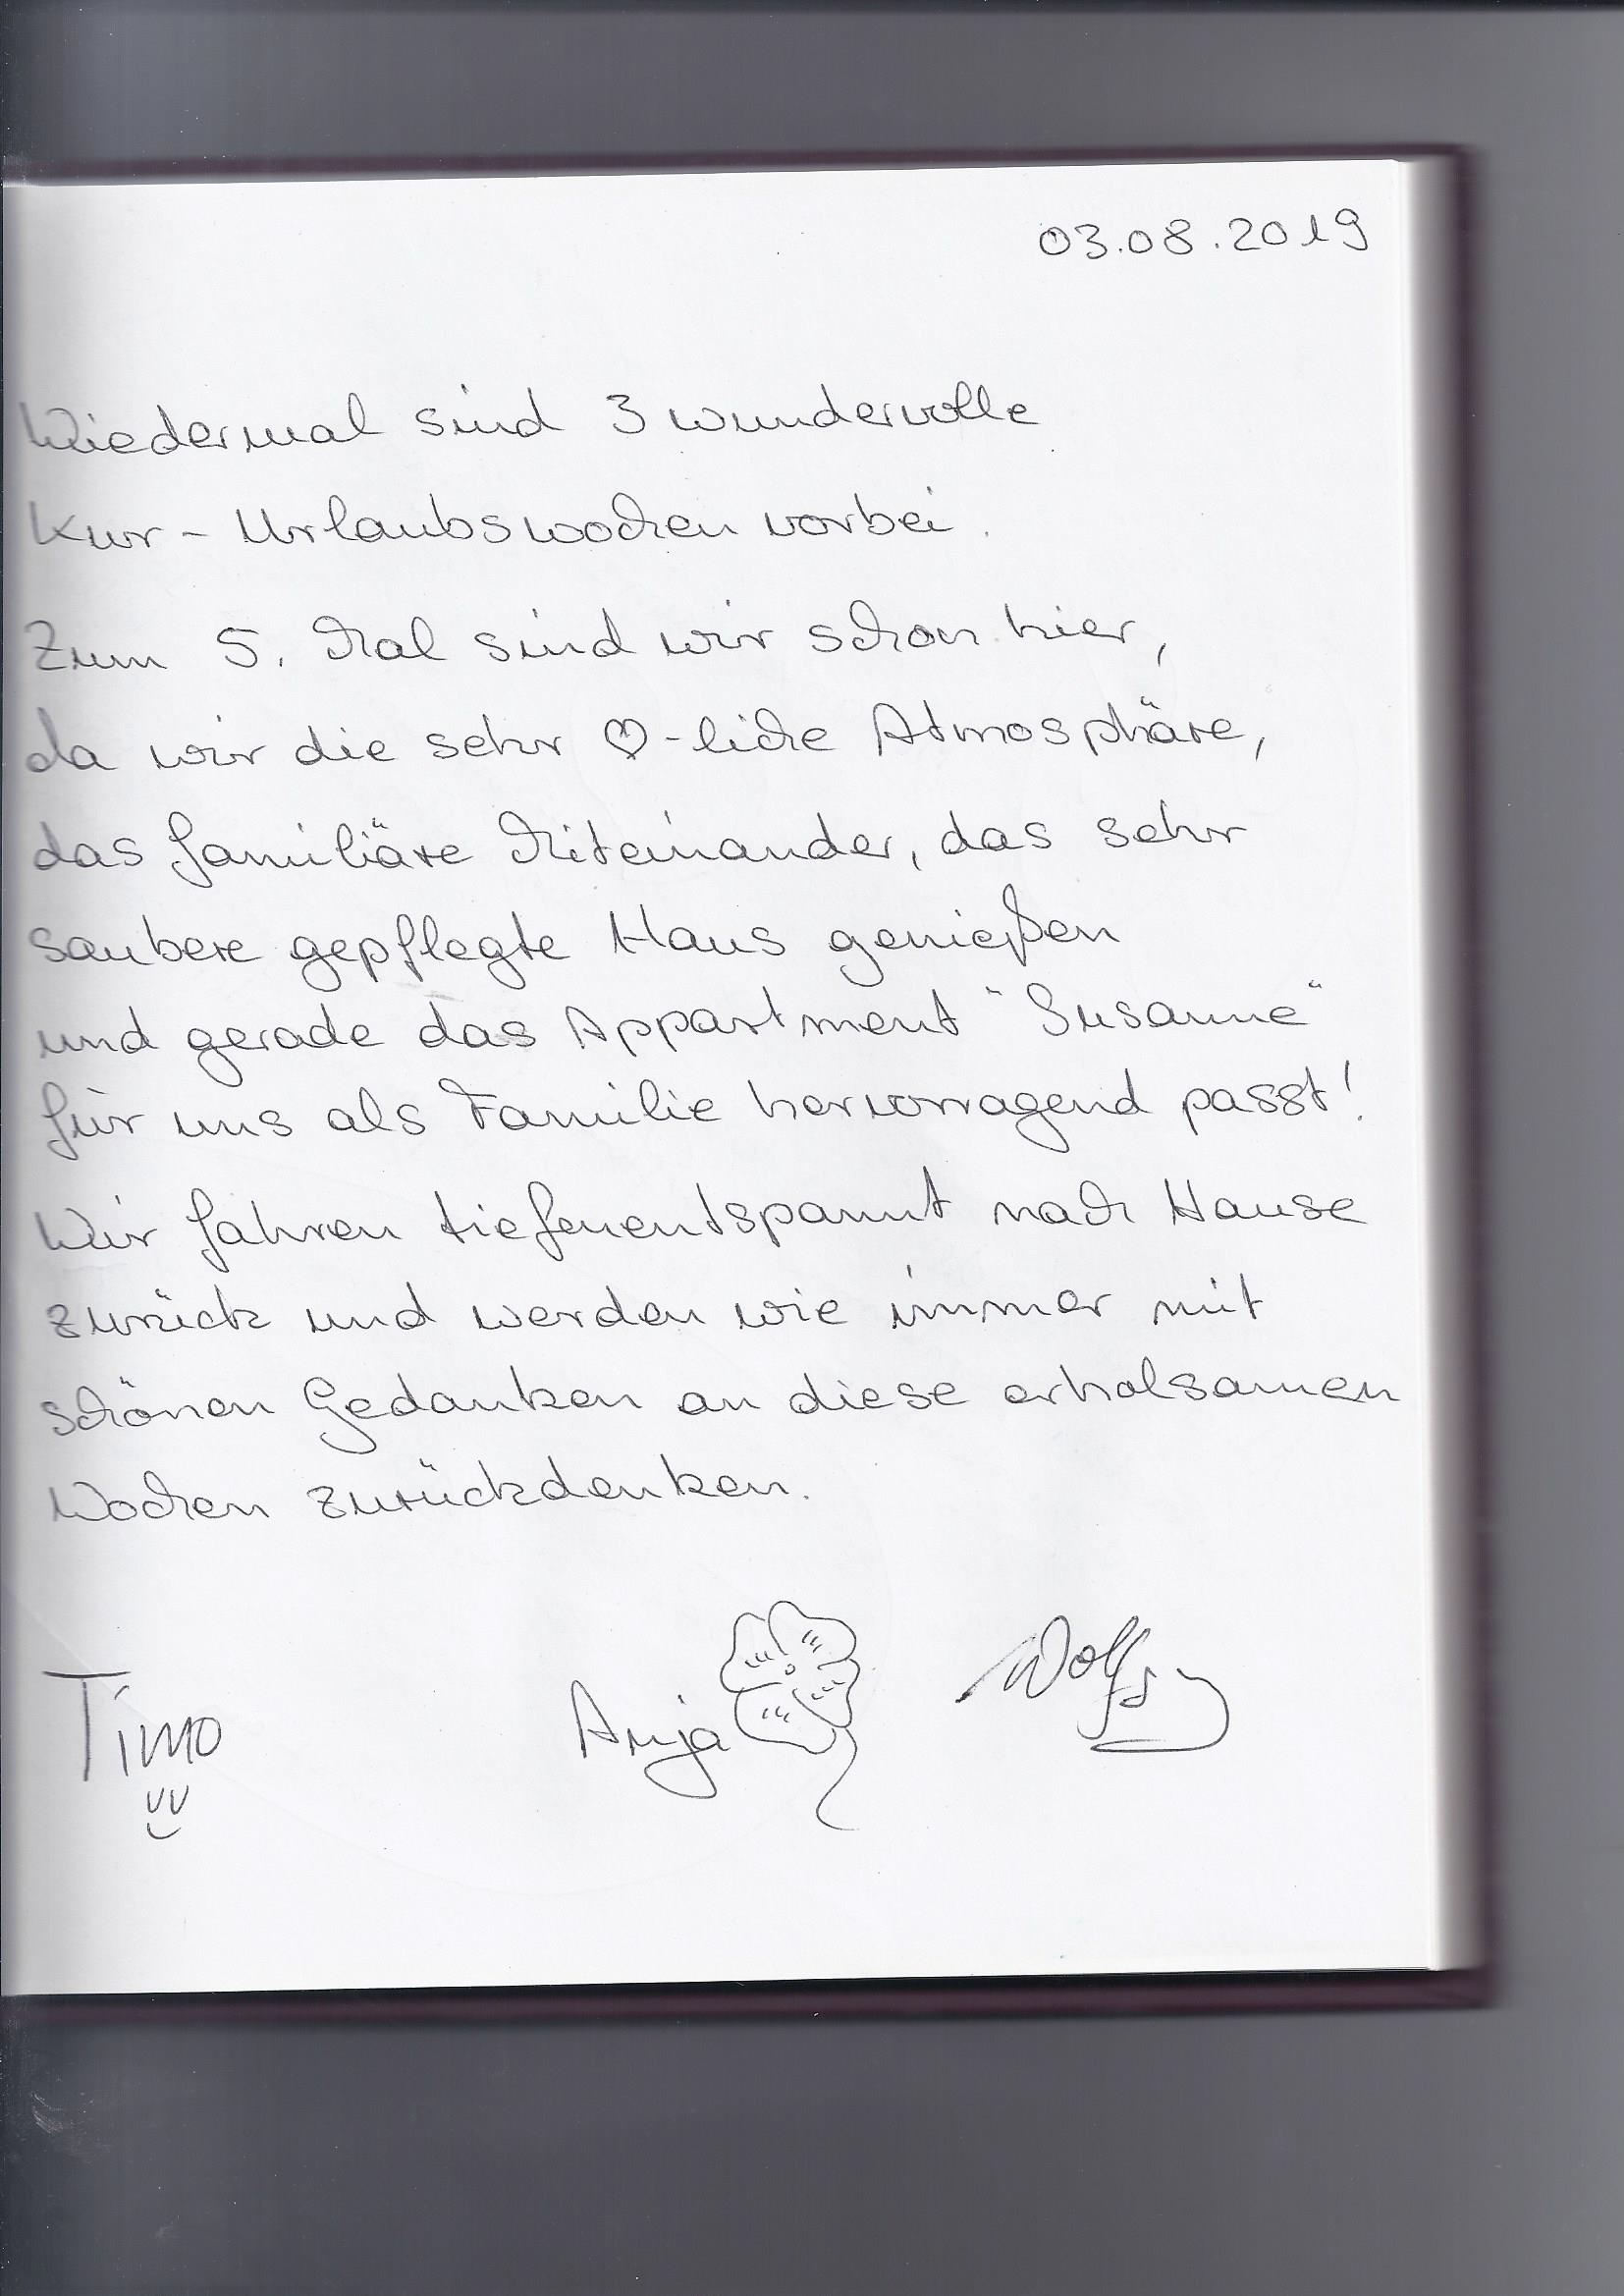 03.08.2019
Wiedermal sind 3 wundervolle
Kur - Urlaubswochen vorbei.
Zum 5. Mal sind wir schon hier,
da wir die sehr ♡-liche Atmosphäre,
das familiäre Miteinander, das sehr
saubere gepflegte Haus genießen
und gerade das Appartment "Susanne"
für uns als Familie hervorragend passt!
Wir fahren tiefenentspannt nach Hause
zurück und werden wie immer mit
schönen Gedanken an diese erholsamen
Wochen zurückdenken.
Timo Anja